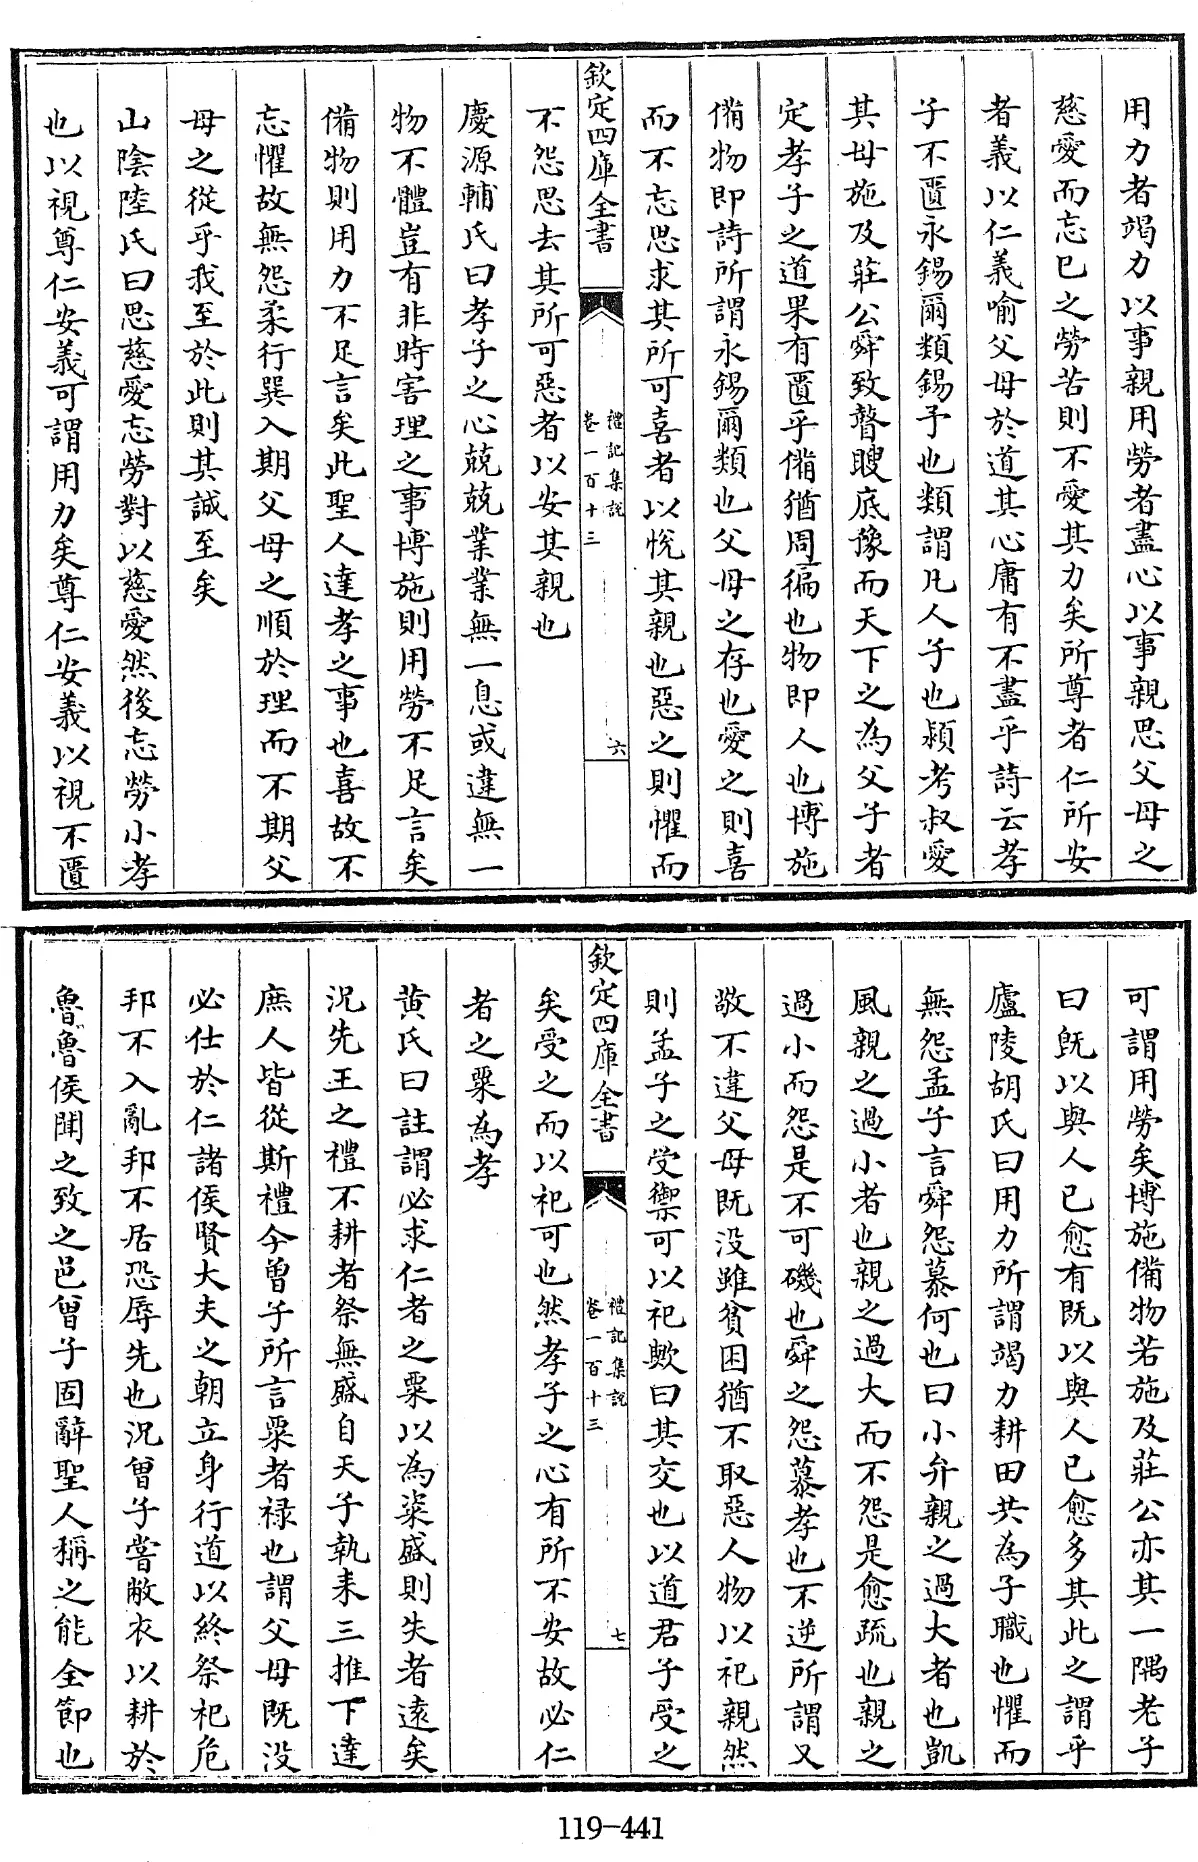 用力者竭力以事親用勞者盡心以事親思父母之
慈愛而忘已之勞苦則不愛其力矣所尊者仁所安
者義以仁義喻父母於道其心庸有不盡乎詩云孝
子不匱永錫爾類錫予也類謂凡人子也潁考叔愛
其母施及莊公舜致瞽瞍底豫而天下之為父子者
定孝子之道果有匱乎備猶周徧也物即人也博施
備物即詩所謂永錫爾類也父母之存也愛之則喜
而不忘思求其所可喜者以悅其親也惡之則懼而
欽定四庫全書
禮記集説
卷一百十三
六
不怨思去其所可惡者以安其親也
慶源輔氏曰孝子之心兢兢業業無一息或違無一
物不體豈有非時害理之事博施則用勞不足言矣
備物則用力不足言矣此聖人達孝之事也喜故不
忘懼故無怨柔行巽入期父母之順於理而不期父
母之從乎我至於此則其誠至矣
山陰陸氏曰思慈愛忘勞對以慈愛然後忘勞小孝
也以視尊仁安義可謂用力矣尊仁安義以視不匱
可謂用勞矣博施備物若施及莊公亦其一隅老子
曰既以與人已愈有既以與人已愈多其此之謂乎
廬陵胡氏曰用力所謂竭力耕田共為子職也懼而
無怨孟子言舜怨慕何也曰小弁親之過大者也凱
風親之過小者也親之過大而不怨是愈疏也親之
過小而怨是不可磯也舜之怨慕孝也不逆所謂又
敬不違父母既没雖貧困猶不取惡人物以祀親然
則孟子之受禦可以祀歟曰其交也以道君子受之
欽定四庫全書
禮記集説
卷一百十三
七
矣受之而以祀可也然孝子之心有所不安故必仁
者之粟為孝
黄氏曰註謂必求仁者之粟以為粢盛則失者遠矣
況先王之禮不耕者祭無盛自天子執耒三推下達
庶人皆從斯禮今曾子所言粟者禄也謂父母既没
必仕於仁諸侯賢大夫之朝立身行道以終祭祀危
邦不入亂邦不居恐辱先也況曾子嘗敝衣以耕於
魯魯侯聞之致之邑曾子固辭聖人稱之能全節也
119-441